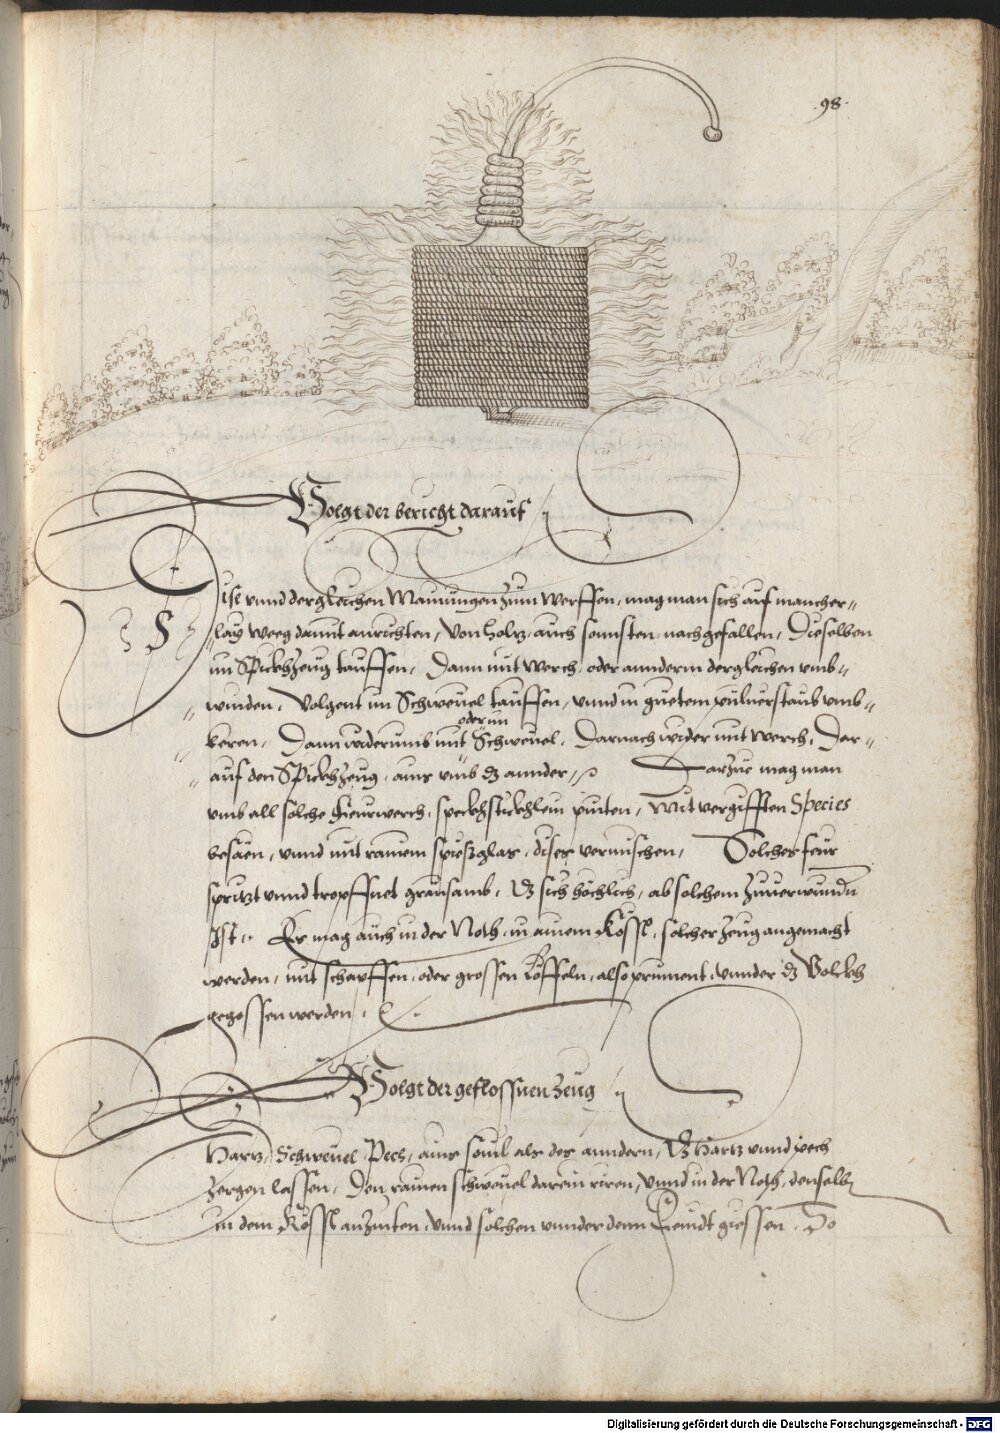 .98.
Volgt der bericht darauf
Dise vnnd dergleichen Mainungen zum Werffen, mag man sich auf mancher-
lay weeg damit anrichten, Von holz, auch sonnsten, nachgefallen, Dieselben
im Spickhzeug tauffen, Dann mit Werch, oder annderm dergleichen vmb-
winden, Volgent im Schweuel tauffen, vnnd in guetem puluerstaub vmb-
oder im
keren, Dann widerumb mit Schweuel, Darnach wider mit Werch, Dar-
auf den Spickhzeug, ains vmb dz annder, Darzue mag man
vmb all solche feurwerch, speckhstickhlein pinten, Mit vergifften Species
besäen, vnnd mit rainem spiesglas, dises vermischen, Solches feur
spritzt vnnd tropffnet grausamb, dz sich höchlich, ab solchem zuuerwundern
Ist. Er mag auch in der Noth, in ainem Kössl, solcher zeug angemacht
werden, mit scharffen, oder grossen Löffeln, also prinnent, vnnder dz Volckh
gegossen werden,
Volgt der geflossnen zeug
Hartz, Schweuel, Pech, ains souil als des anndern, dz Hartz vnnd pech
zergen lassen, Den rainen schweuel darein riren, vnnd in der Noth, denselben
in dem Kössl anzinten, vnnd solchen vnnder denn Feindt giessen, So
Digitalisierung gefördert durch die Deutsche Forschungsgemeinschaft - DFG